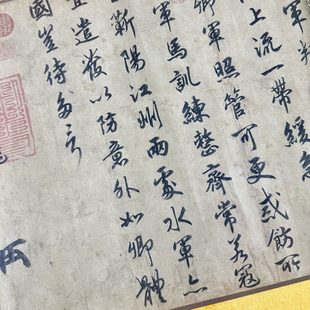 軍叛
上流一帶緩急
卿軍照管可更戒飭所
軍馬訓練整齊常若寇
蘄陽江州兩處水軍亦
宜遣發以防意外如卿體
國豈待多言